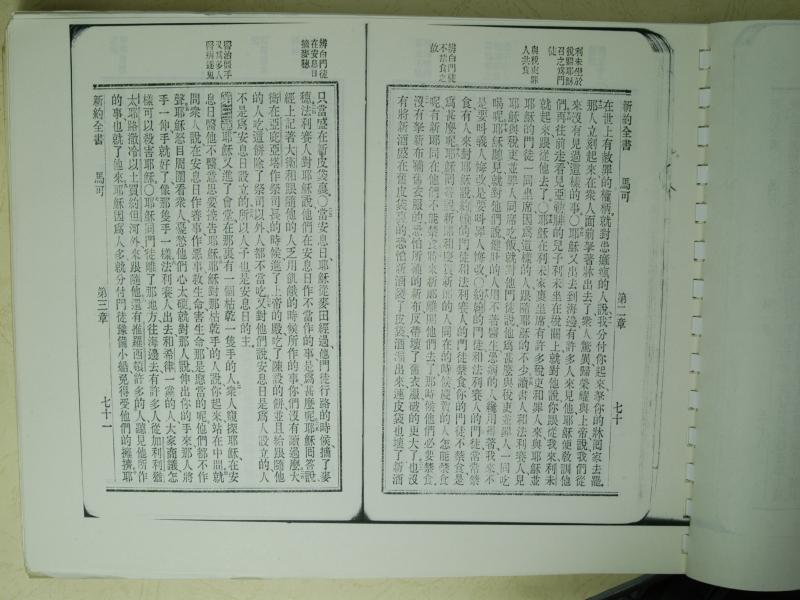 新約全書
馬可
第二章
七十
利未坐於
稅關耶穌
召之爲門
徒
與稅吏罪
人共食
辨白門徒
不禁食之
故
在世上有赦罪的權柄就對患癱瘋的人說我分付你起來拏你的牀回家去罷
那人立刻起來在衆人面前拏著牀出去了衆人驚異歸榮耀與上帝說我們從
來沒有見過這樣的事○耶穌又出去到海邊有許多人來見他耶穌便敎訓他
們再往前走看見亞勒腓的兒子利未坐在稅關上就對他說你跟從我來利未
就起來跟從他去了○耶穌在利未家裏坐席有許多稅吏和罪人來與耶穌並
耶穌的門徒一同坐席因爲這樣的人跟隨耶穌的不少讀書人和法利賽人見
耶穌與稅吏並罪人一同吃
喝呢耶穌聽見就對他們說健壯的人用不著醫生患病的人纔用得著我來不
是要叫義人悔改是要叫罪人悔改○約翰的門徒和法利賽人的門徒常常禁
食有人來對耶穌說約翰的門徒和法利賽人的門徒禁食你的門徒不禁食是
爲甚麼呢耶穌回答說新郎和慶賀的人同在的時候慶賀的人怎能禁食
呢有新郎同在他們不能禁食將來新郎離開他們去了那時候他們必要禁食
沒有拏新布補舊衣服的恐怕所補的新布反帶壞了舊衣服破的更大了也沒
有將新酒盛在舊皮袋裏的恐怕新酒裂了皮袋酒漏出來連皮袋也壞了新酒
辨白門徒
在安息日
摘麥穗
醫治枯手
又爲多人
醫病逐鬼
只當盛在新皮袋裏○當安息日耶穌從麥田經過他門徒行路的時候掐了麥
穗法利賽人對耶穌說他們在安息日作不當作的事是爲甚麼呢耶穌回答說
經上記著大衛和跟隨他的人乏用飢餓的時候所作的事你們沒有讀過麼大
衛在亞庇亞塔作祭司長的時候進了上帝的殿吃了陳設的餅並且給跟隨他
的人吃這餅除了祭司以外人都不當吃又對他們說安息日是爲人設立的人
不是爲安息日設立的所以人子也是安息日的主
第三章耶穌又進了會堂在那裏有一個枯乾一隻手的人衆人窺探耶穌在安
息日醫他不醫意思要控告耶穌耶穌對那枯乾手的人說你起來站在中間就
問衆人說在安息日作善事作惡事救生命害生命那是應當的呢他們都不作
聲耶穌怒目周圍看衆人憂愁他們心太硬就對那人說伸出你的手來那人將
手一伸手就好了像那隻手一樣法利賽人出去和希律一黨的人大家商議怎
樣可以殺害耶穌○耶穌同門徒離了那地方往海邊去有許多人從加利利猶
太耶路撒冷以土買約但河外來跟隨他還有推羅西頓許多的人聽見他所作
的事也就了他來耶穌因爲人多就分付門徒豫備小船免得受他們的擁擠耶
新約全書
馬可
第三章
七十一